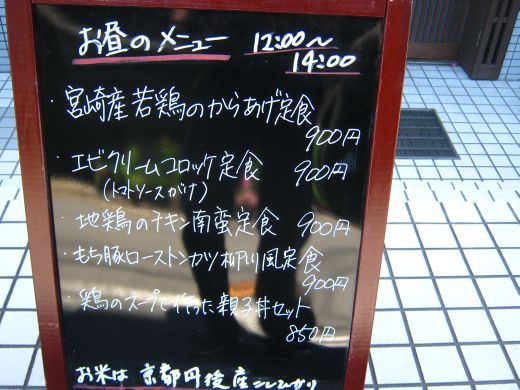 お昼のメニュー 12:00〜
14:00
・宮崎産若鶏のからあげ定食
900円
・エビクリームコロッケ定食 900円
(トマトソースがけ)
・地鶏のチキン南蛮定食 900円
・もち豚ローストンカツ柳川風定食
900円
・鶏のスープで作った親子丼セット
850円
お米は 京都丹後産コシヒカリ